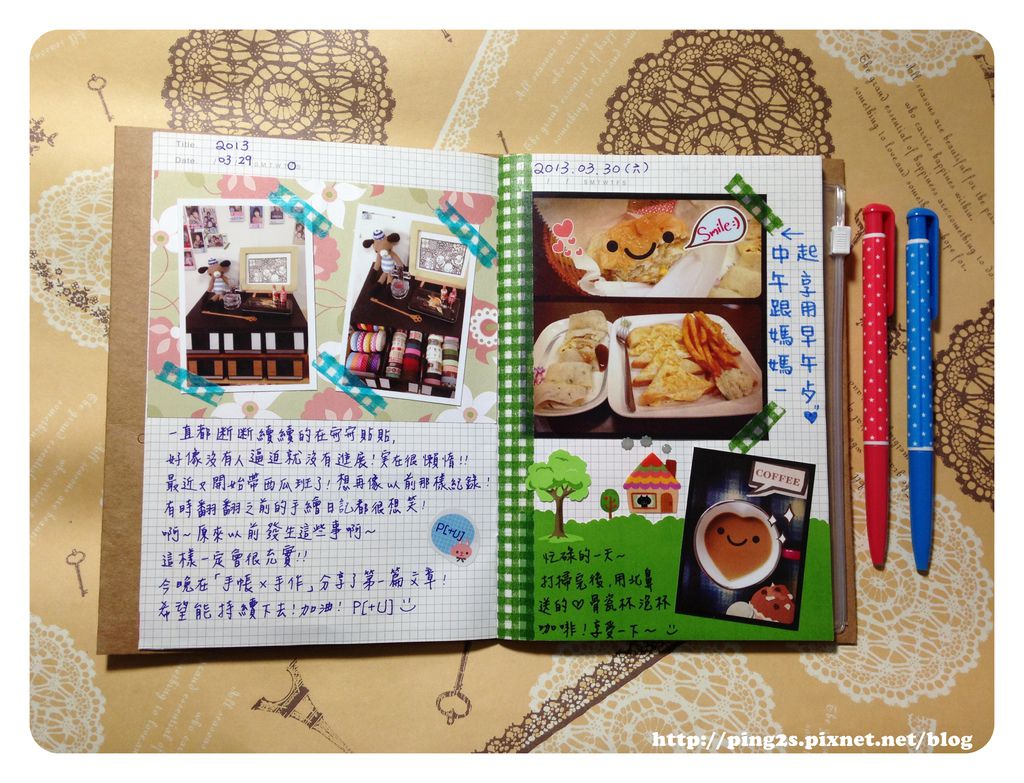 Title. 2013
Date. 03/29 S M T W T F S
一直都斷斷續續的在寫寫貼貼,
好像沒有人逼迫就沒有進展!實在很懶惰!!
最近又開始帶西瓜班了!想再像以前那樣紀錄!
有時翻翻之前的手繪日記都很想笑!
啊~原來以前發生這些事啊~
這樣一定會很充實!!
今晚在「手帳×手作」分享了第一篇文章!
希望能持續下去!加油! P[+U]
P[+U]
2013.03.30(六)
S M T W T F S
Smile:)
←中午跟媽媽一
起享用早午夕♥
COFFEE
忙碌的一天~
打掃完後,用北鼻
送的♡骨瓷杯泡杯
咖啡!享受一下~
http://ping2s.pixnet.net/blog